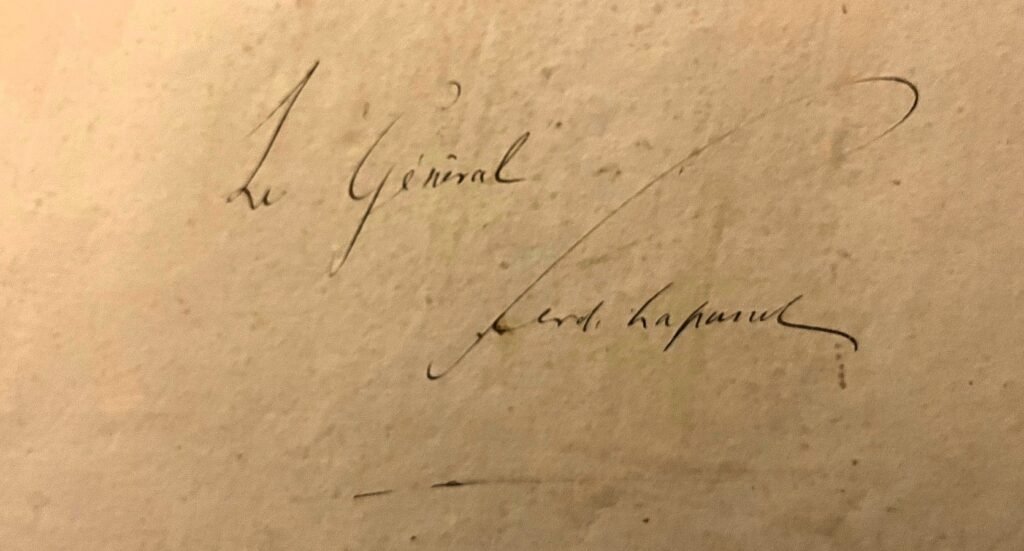 Le Général
Ferd. Lapasset